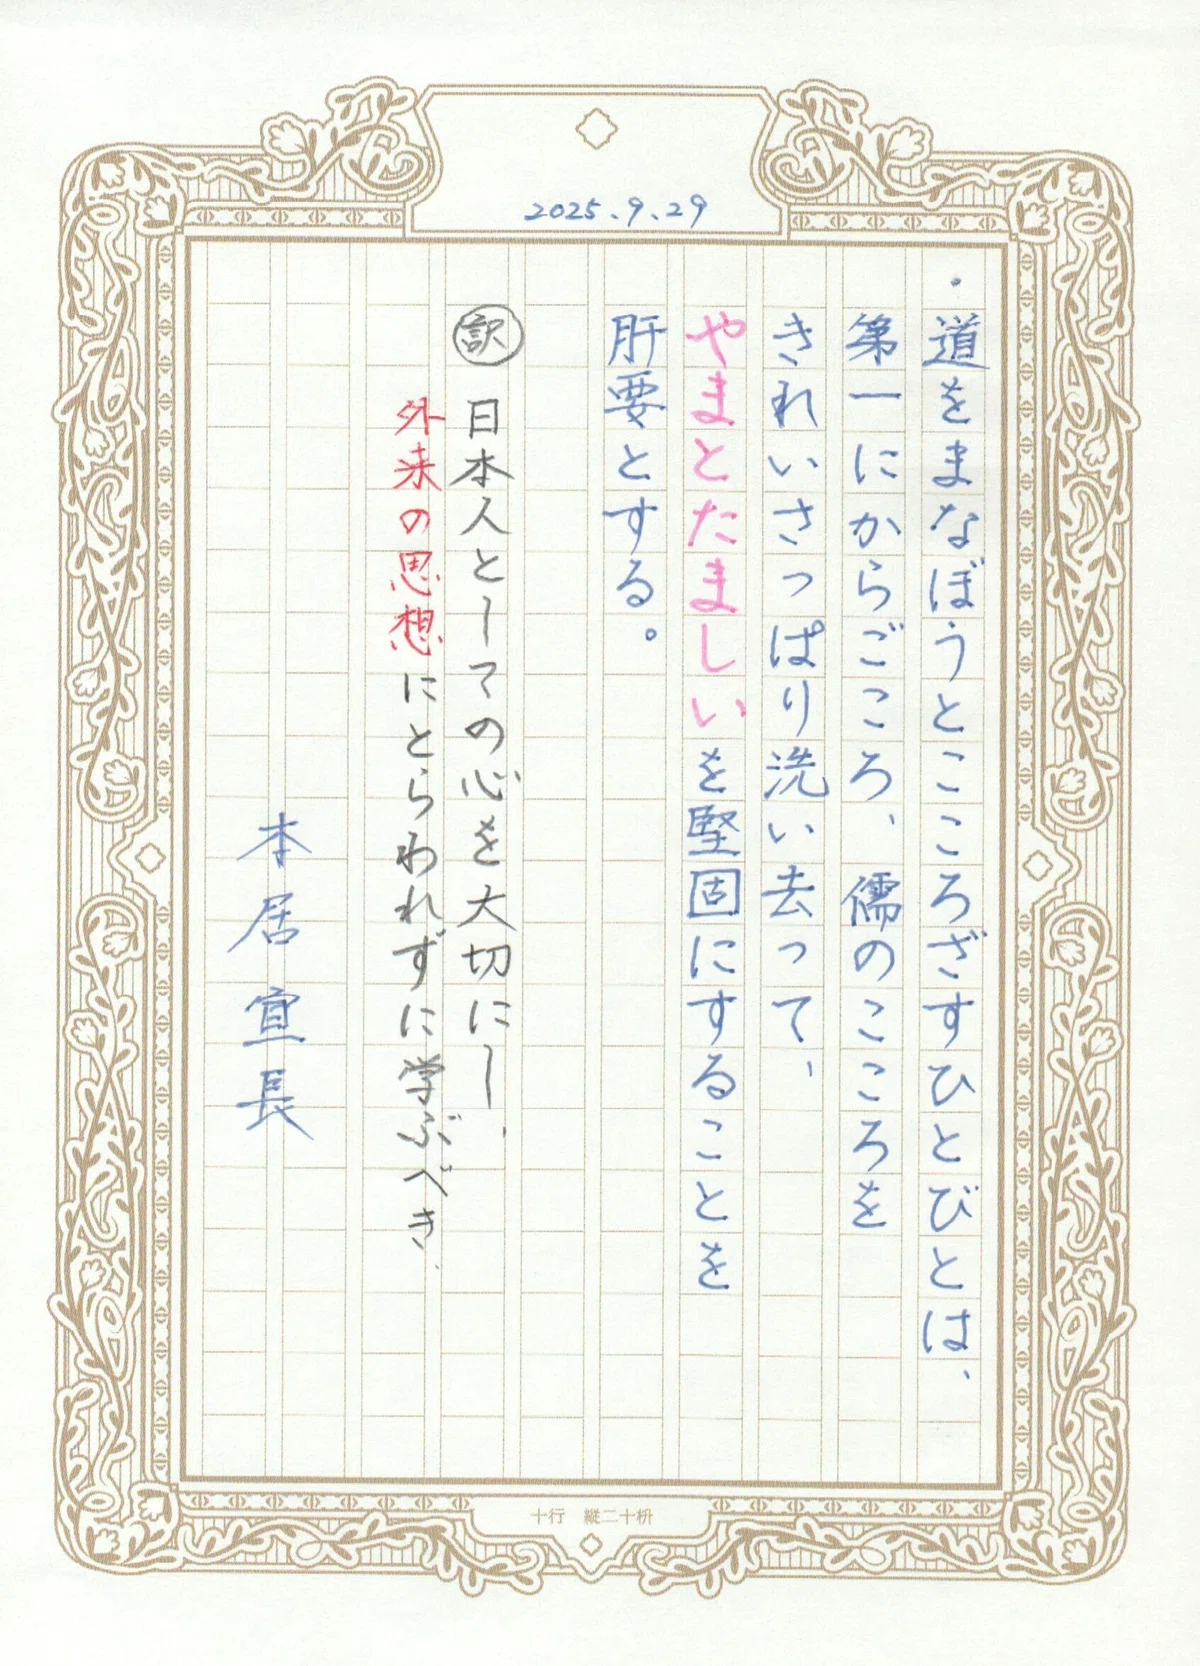 2025.9.29
・道をまなぼうとこころざすひとびとは、
第一にからごころ、儒のこころを
きれいさっぱり洗い去って、
やまとたましいを堅固にすることを
肝要とする。
訳 日本人としての心を大切にし、
外来の思想にとらわれずに学ぶべき
本居宣長
十行 縦二十枡